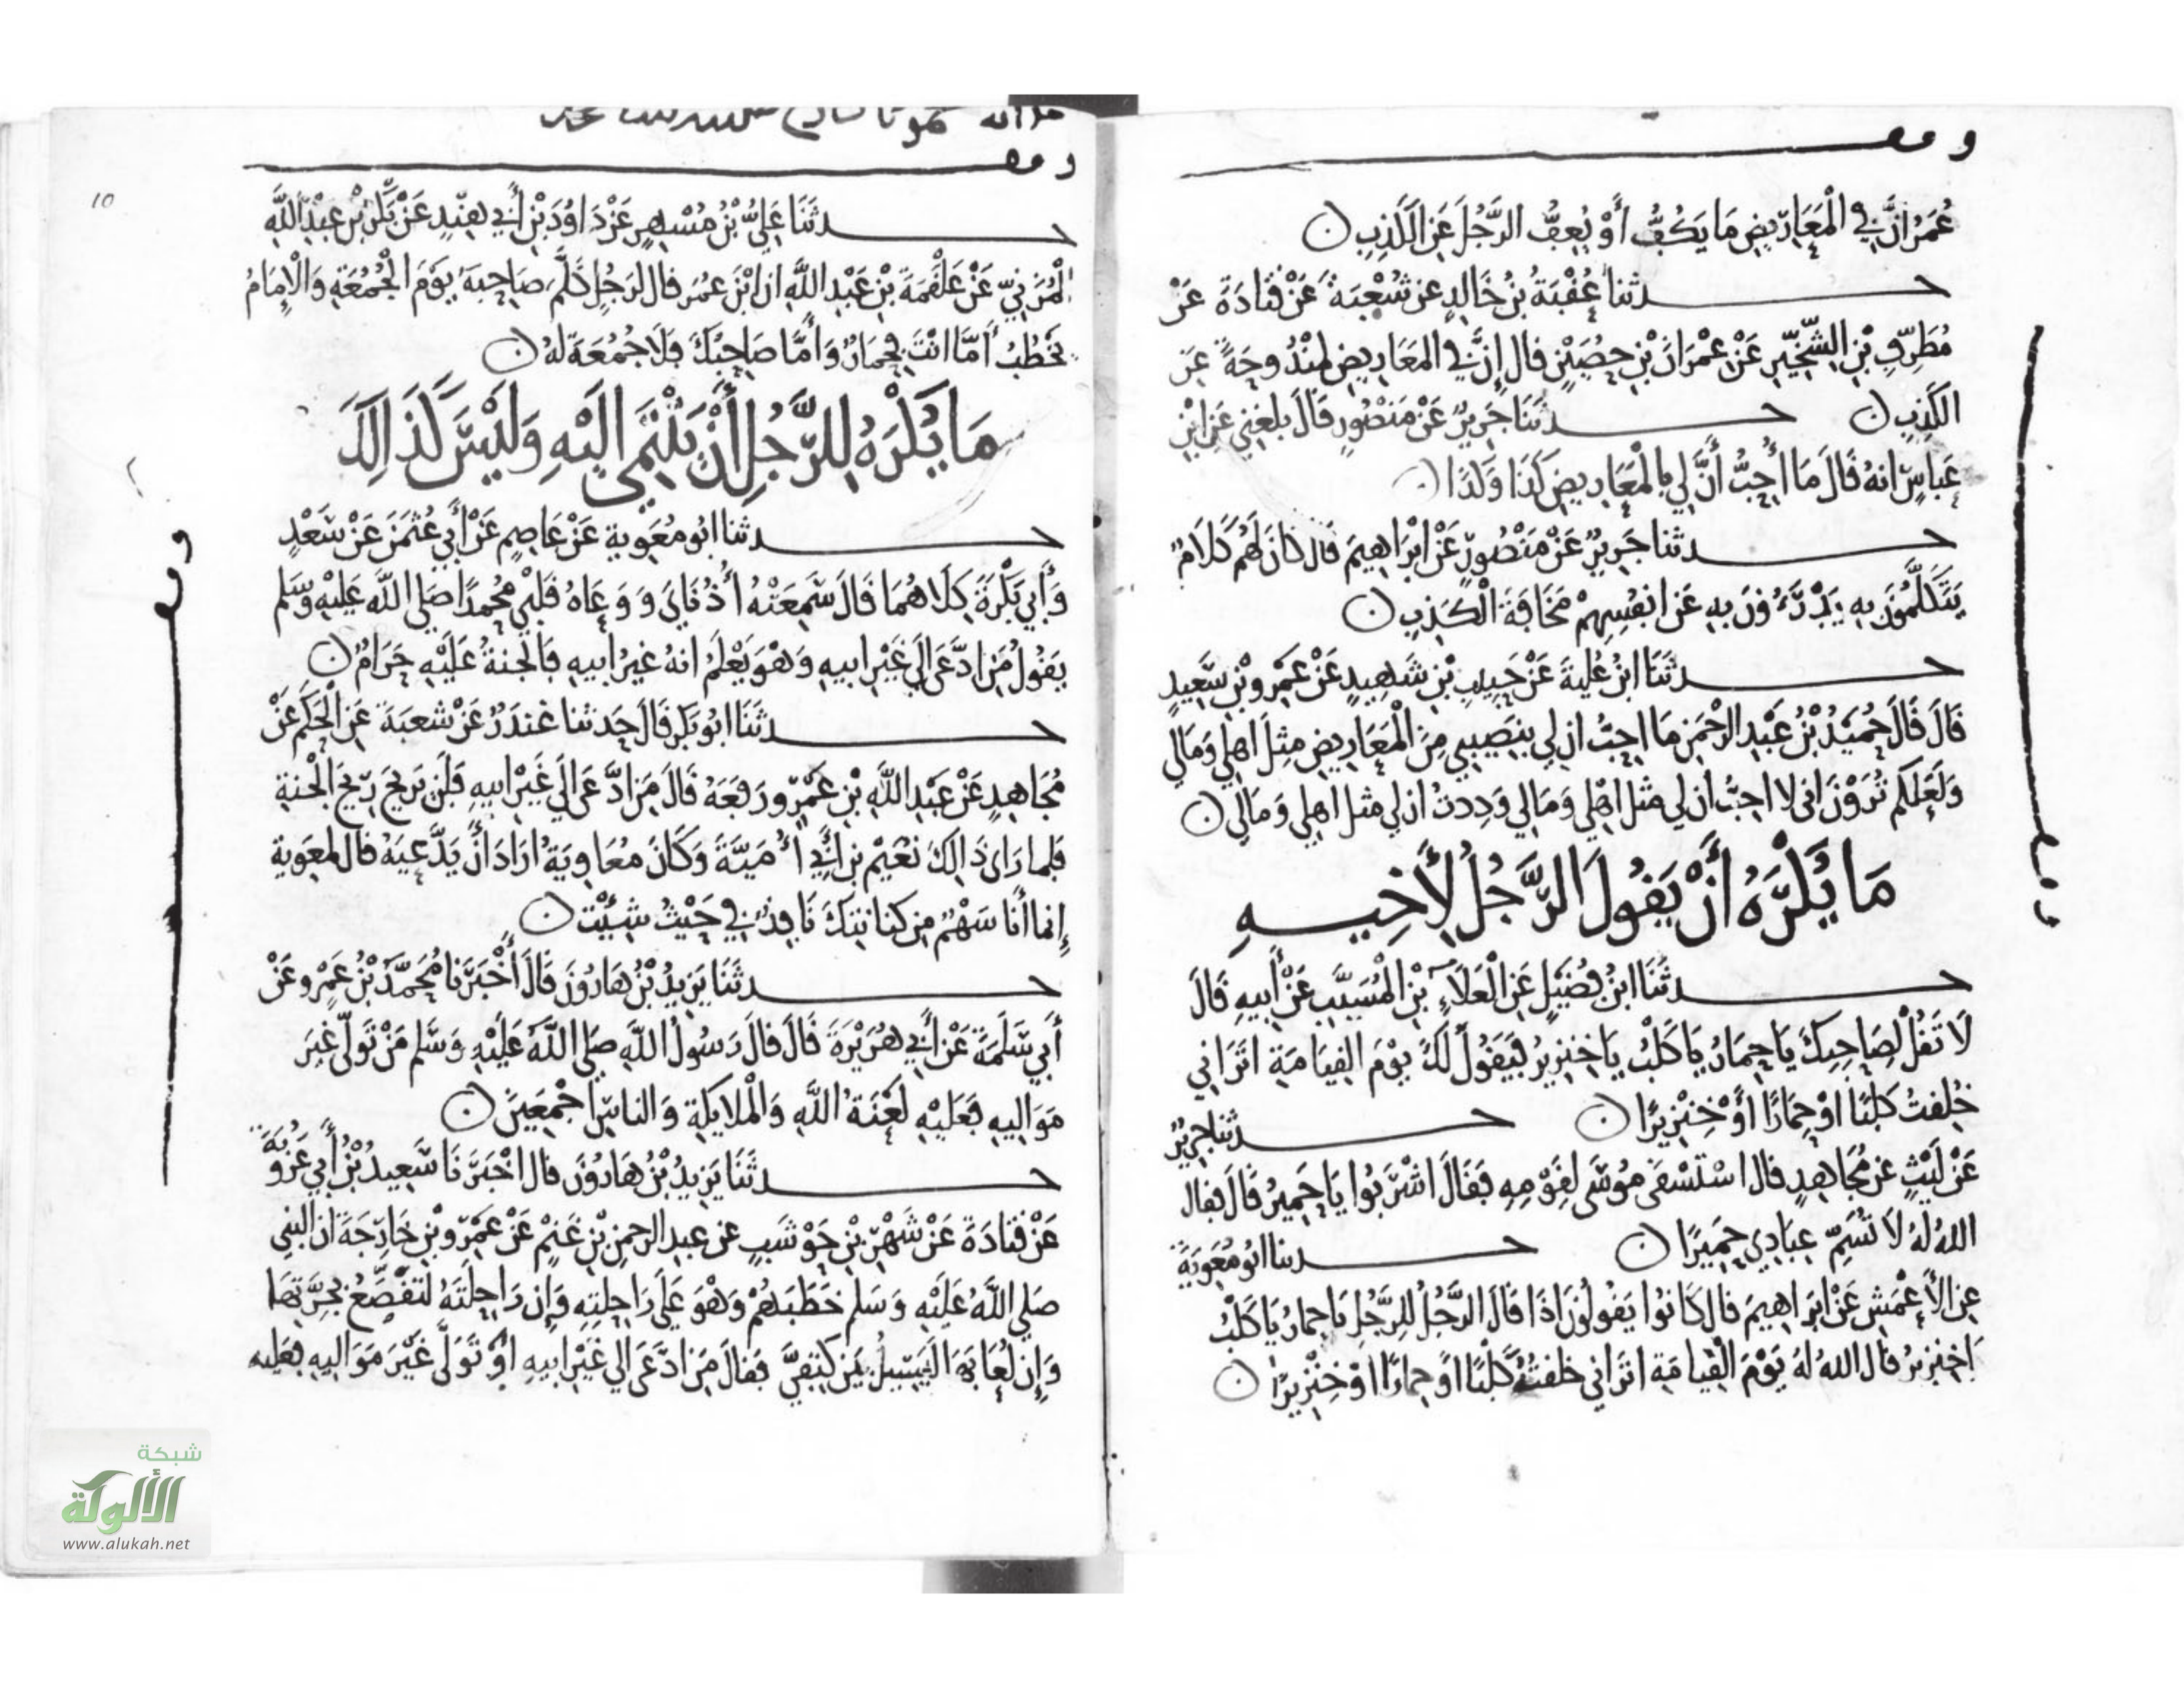 وقف
عُمَرُ إنَّ في الْمَعَارِيضِ مَا يَكُفُّ أَوْ يُعِفُّ الرَّجُلَ عَنِ الْكَذِبِ
حدثنا عُقْبَةُ بْنُ خَالِدٍ عن شُعْبَةَ عَنْ قَتَادَةَ عَنْ
مُطَرِّفِ بْنِ الشِّخِّيرِ عَنْ عِمْرَانَ بْنِ حُصَيْنٍ قال إِنَّ في المَعَارِيضِ لمَنْدُوحَةً عَنِ
الكَذِبِ حدثنا جَرِيرٌ عَنْ مَنْصُورٍ قَالَ بلغني عَنِ ابْنِ
عَبَّاسٍ انهُ قَالَ مَا أُحِبُّ أَنَّ لِي بِالْمَعَارِيضِ كَذَا وَكَذَا
حدثنا جَرِيرٌ عَنْ مَنْصُورٍ عَنْ ابْرَاهِيمَ قال كَانَ لَهُمْ كَلَامٌ
يَتَكَلَّمُونَ بِهِ يَدْرَءُونَ بِهِ عَن انفُسِهِمْ مَخَافَةَ الْكَذِبِ
حدثَنَا ابْنُ عُلَيَّةَ عَنْ حَبِيبِ بْنِ شَهِيدٍ عَنْ عَمْرِو بْنِ سَعِيدٍ
قَالَ قَالَ حُمَيْدُ بْنُ عَبْدِ الرَّحْمَنِ مَا احِبُّ ان لِي بِنَصِيبِي مِنَ الْمَعَارِيضِ مِثلَ اهلِي وَمَالِي
وَلَعَلَكُم تُرَوْنَ انى لا احِبُّ ان لِي مثل اهْلِي وَمَالِي وَدِدتُ ان لي مثل اهلِي وَمَالِي
مَا يُكْرَهُ أَنْ يَقُولَ الرَّجُلُ لِأَخِيهِ
حدثَنَا ابْنُ فُضَيْلٍ عَنِ الْعَلَاءِ بْنِ الْمُسَيَّبِ عَنْ أَبِيهِ قَالَ
لَا تَقُلْ لِصَاحِبِكَ يَا حِمَارُ يَا كَلْبُ يَا خِنزِيرُ فَيَقُولُ لَكَ يَوْمَ القِيَامَةِ اتَرَانِي
خُلِقتُ كَلْبًا اوْ حِمَارًا أَوْ خِنْزِيرًا حدثنا جرِيرٌ
عَنْ لَيْثٍ عن مُجَاهِدٍ قال اسْتَسْقَى مُوسَى لِقَوْمِهِ فَقَالَ اشْرَبُوا يَا حَمِيرُ قَالَ فقال
اللهُ لَهُ لَا تُسَمِّ عِبَادِي حَمِيرًا حدثنا ابُو مُعَوِيَةَ
عنِ الأعْمَشِ عَنْ ابرَاهِيمَ قال كَانُوا يَقُولُونَ اذَا قَالَ الرَّجُلُ لِلرَّجُلِ يَا حِمَارُ يَا كَلْبُ
يَا خِنزِيرُ قال اللهُ لهُ يَوْمَ الْقِيَامَةِ اتَرَانِي خلقتُهُ كَلْبًا اوْ حِمارًا اوْ خِنْزِيرًا
وقف
وقف
حدثَنَا عَلِيُّ بْنُ مُسْهِرٍ عَنْ دَاوُدَ بْنِ أَبِي هِنْدٍ عَنْ بَكْرِ بْنِ عَبْدِ اللَّهِ
الْمُزَنِيِّ عَنْ عَلْقَمَةَ بْنِ عَبْدِ اللَّهِ ان ابْنَ عُمَر قال لرَجُلٍ كَلَّمَ صَاحِبَهُ يَوْمَ الْجُمُعَةِ وَالْإِمَامُ
يَخْطُبُ أَمَّا انْتَ فحِمَارٌ وَأَمَّا صَاحِبُكَ فَلَا جُمُعَةَ لهُ
مَا يُكْرَهُ لِلرَّجُلِ أَنْ يَنْتَمِي الَيْهِ وَلَيْسَ كَذَالِكَ
حدثنا ابُو مُعَوِيةَ عَنْ عَاصِمٍ عَنْ أَبِي عُثمَنَ عَنْ سَعْدٍ
وَأَبِي بَكْرَةَ كِلَاهُمَا قَالَ سَمِعَتْهُ أُذُنَايَ وَوَعَاهُ قَلْبِي مُحَمدًا صَلى اللَّهُ عَلَيْهِ وَسَلم
يَقُولُ مَن ادَّعَى الَى غَيْرِ ابيهِ وَهْوَ يَعْلَمُ انهُ غيرُ ابيهِ فَالجَنةُ عَلَيْهِ حَرَامٌ
حدثَنَا ابُو بَكرٍ قَالَ حَدثنا غندَرٌ عَنْ شُعبَةَ عَنِ الْحَكَمِ عَنْ
مُجَاهِدٍ عَنْ عَبْدِ اللَّهِ بْنِ عَمْرٍو رَفَعَهُ قَالَ مَن ادَّعَى الَى غَيْرِ ابِيهِ فَلَن يَرِيحَ رِيحَ الْجَنةِ
فلما رَاى ذَالِكَ نُعَيْمُ بن أَبِي أُمَيَّةَ وَكَانَ مُعَاوِيَةُ ارَادَ أَنْ يَدَّعِيَهُ قال لمعَوِيةَ
إِنما أَنَا سَهْمٌ مِن كنانَتِكَ فَاقذفْنِي حَيْثُ شِئْتَ
حدثَنَا يَزِيدُ بْنُ هَارُونَ قَالَ أَخْبَرَنَا مُحَمَّدُ بْنُ عَمْرٍو عَنْ
أَبِي سَلَمَةَ عَنْ أَبِي هُرَيْرَةَ قَالَ قَالَ رَسُولُ اللَّهِ صَلى اللَّهُ عَلَيْهِ وَسَلم مَنْ تَوَلَّى غَيرَ
مَوَالِيهِ فَعَلَيْهِ لَعْنَةُ اللَّهِ وَالْمَلايِكَةِ وَالناسِ اجْمَعِينَ
حدثَنَا يَزِيدُ بْنُ هَارُونَ قال اخْبَرَنَا سَعِيدُ بْنُ أَبِي عَرُوبَةَ
عَنْ قَتَادَةَ عَنْ شَهْرِ بْنِ حَوْشَبٍ عن عبدِ الرحمنِ بْنِ غَنْمٍ عَنْ عَمْرِو بْنِ خَارِجَةَ ان النبي
صَلى اللَّهُ عَلَيْهِ وَسَلم خَطَبَهُمْ وَهْوَ عَلَى رَاحِلَتِهِ وَإِن رَاحِلَتَهُ لتَقْصَعُ بِجِرَّتِهَا
وَإِن لُعَابَهَا لَيَسِيلُ بَيْنَ كَتِفَيَّ فَقالَ مَن ادَّعَى الى غَيْرِ ابِيهِ اوْ تَوَلَّى غَيْرَ مَوَالِيهِ فعليه
وقف
10
شبكة
الألوكة
www.alukah.net